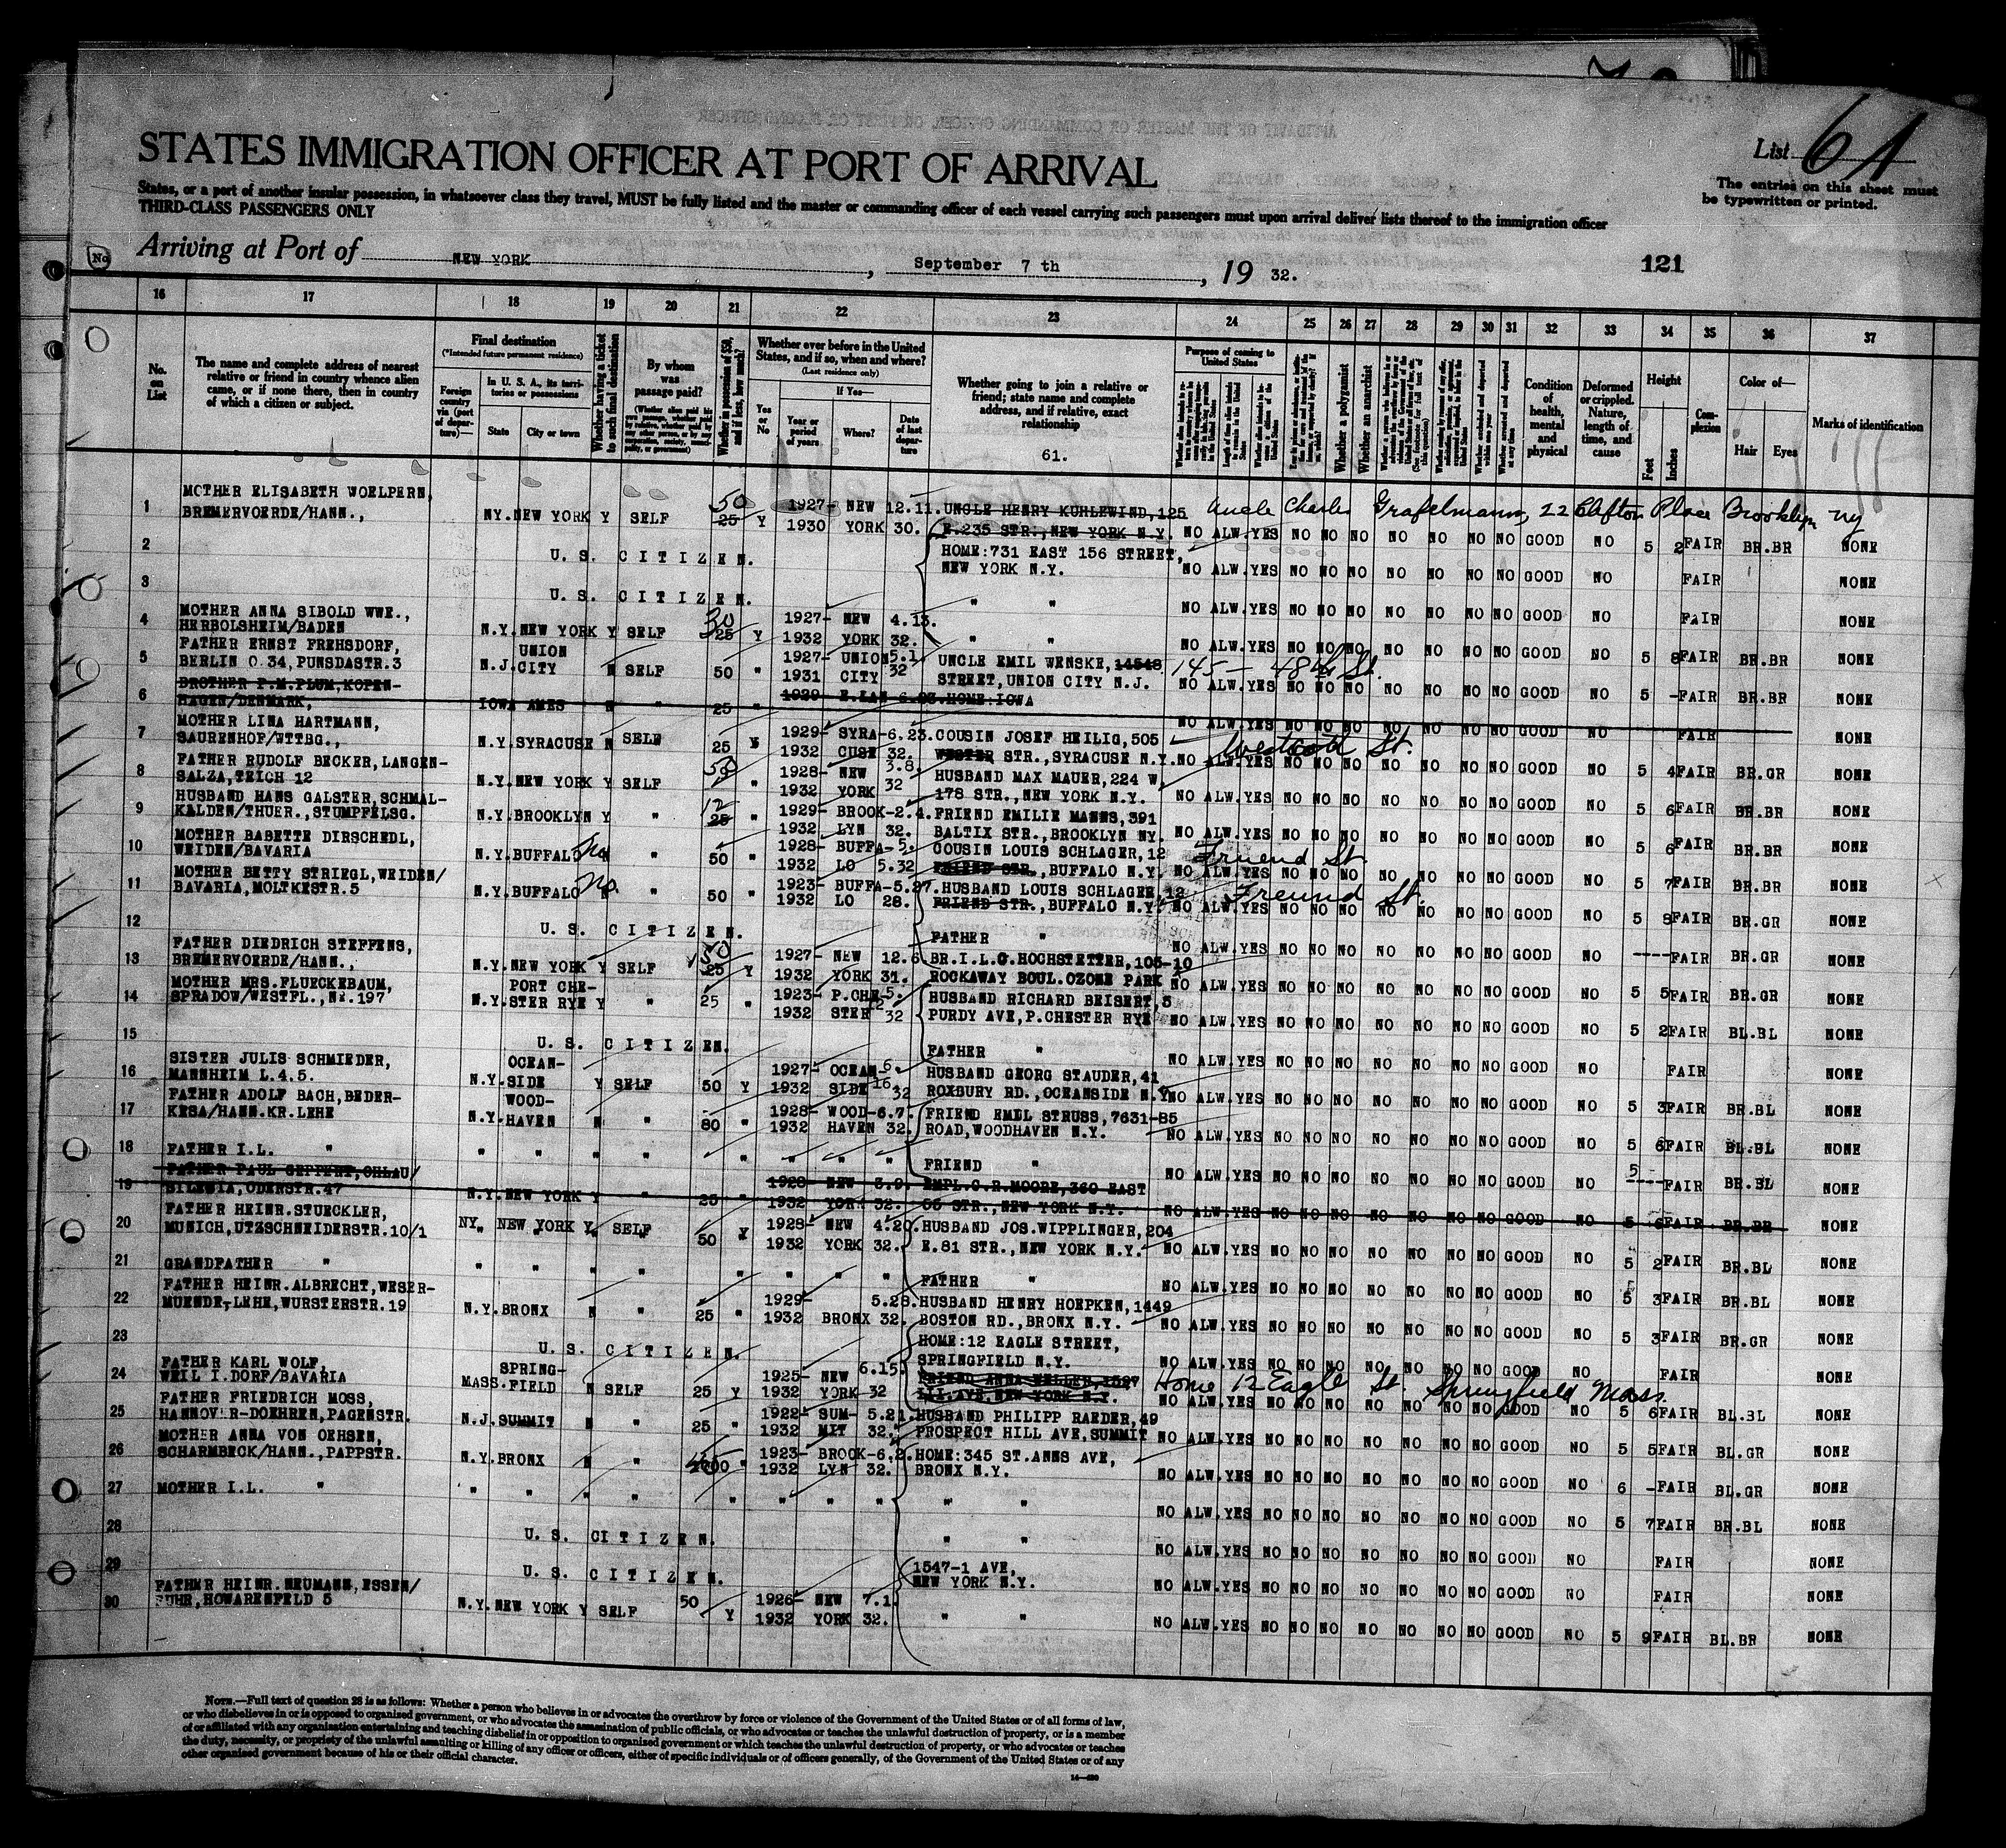 List 61
STATES IMMIGRATION OFFICER AT PORT OF ARRIVAL
The entries on this sheet must
be typewritten or printed.
States, or a port of another insular possession, in whatsoever class they travel, MUST be fully listed and the master or commanding officer of each vessel carrying such passengers must upon arrival deliver lists thereof to the immigration officer
THIRD-CLASS PASSENGERS ONLY
Arriving at Port of NEW YORK, September 7 th, 19 32.
121
16 17 18 19 20 21 22 23 24 25 26 27 28 29 30 31 32 33 34 35 36 37
No. on List
The name and complete address of nearest relative or friend in country whence alien came, or if none there, then in country of which a citizen or subject.
Final destination
(*Intended future permanent residence)
Foreign country via (port of departure)—
In U. S. A., its territories or possessions
State
City or town
Whether having a ticket to such final destination
By whom was passage paid?
Whether in possession of $50, and if less, how much?
Whether ever before in the United States, and if so, when and where?
(Last residence only)
Yes or No
If Yes—
Year or period of years
Where?
Date of last departure
Whether going to join a relative or friend; state name and complete address, and if relative, exact relationship
61.
Purpose of coming to United States
Whether a polygamist
Whether an anarchist
Condition of health, mental and physical
Deformed or crippled. Nature, length of time, and cause
Height
Feet
Inches
Complexion
Color of—
Hair
Eyes
Marks of identification
1 MOTHER ELISABETH WOELPERN, BREMERVOERDE/HANN., NY. NEW YORK Y SELF 50 25 Y 1927- 1930 NEW YORK 12.11. 30. UNCLE HENRY KUHLEWIND, 125 E.235 STR., NEW YORK N.Y. Uncle Charles Grafelmann, 22 Clifton Place Brooklyn NY NO ALW. YES NO NO NO NO NO NO NO GOOD NO 5 2 FAIR BR.BR NONE
2 U. S. CITIZEN. HOME: 731 EAST 156 STREET, NEW YORK N.Y. NO ALW. YES NO NO NO NO NO NO NO GOOD NO FAIR NONE
3 U. S. CITIZEN. " " NO ALW. YES NO NO NO NO NO NO NO GOOD NO FAIR NONE
4 MOTHER ANNA SIBOLD WWE., HERBOLSHEIM/BADEN N.Y. NEW YORK Y SELF 30 25 Y 1927- 1932 NEW YORK 4.13. 32. " " NO ALW. YES NO NO NO NO NO NO NO GOOD NO 5 8 FAIR BR.BR NONE
5 FATHER ERNST FREHSDORF, BERLIN O 34, PUNSDASTR.3 N.J. UNION CITY N SELF 50 " 1927- 1931 UNION CITY 5.1. 32 UNCLE EMIL WENSKE, 14548 145 - 48th St. STREET, UNION CITY N.J. NO ALW. YES NO NO NO NO NO NO NO GOOD NO 5 - FAIR BR.BR NONE
6 BROTHER P.M. PLUM, KOPENHAGEN/DENMARK, IOWA AMES N " 25 " HOME: IOWA NO ALW. YES NO NO NO NO NO NO NO GOOD NO FAIR NONE
7 MOTHER LINA HARTMANN, SAURENHOF/WTTBG., N.Y. SYRACUSE N SELF 25 Y 1929- 1932 SYRACUSE 6.23. 32. COUSIN JOSEF HEILIG, 505 Westcott St. STR., SYRACUSE N.Y. NO ALW. YES NO NO NO NO NO NO NO GOOD NO 5 4 FAIR BR.GR NONE
8 FATHER RUDOLF BECKER, LANGENSALZA, TEICH 12 N.Y. NEW YORK Y SELF 50 " 1928- 1932 NEW YORK 3.8. 32 HUSBAND MAX MAUER, 224 W. 178 STR., NEW YORK N.Y. NO ALW. YES NO NO NO NO NO NO NO GOOD NO 5 6 FAIR BR.BR NONE
9 HUSBAND HANS GALSTER, SCHMALKALDEN/THUER., STUMPFELSG. N.Y. BROOKLYN Y " 12 25 " 1929- 1932 BROOKLYN 2.4. 32. FRIEND EMILIE MANNS, 391 BALTIX STR., BROOKLYN NY. NO ALW. YES NO NO NO NO NO NO NO GOOD NO 5 6 FAIR BR.BR NONE
10 MOTHER BABETTE DIRSCHEDL, WEIDEN/BAVARIA N.Y. BUFFALO No " 50 " 1928- 1932 BUFFALO 5. 5.32 COUSIN LOUIS SCHLAGER, 12 FRIEND STR., BUFFALO N.Y. Freund St. NO ALW. YES NO NO NO NO NO NO NO GOOD NO 5 7 FAIR BR.BR NONE
11 MOTHER BETTY STRIEGL, WEIDEN/BAVARIA, MOLTKESTR.5 N.Y. BUFFALO No. " 50 " 1923- 1932 BUFFALO 5.27. 28. HUSBAND LOUIS SCHLAGER, 12 FRIEND STR., BUFFALO N.Y. Freund St. NO ALW. YES NO NO NO NO NO NO NO GOOD NO 5 8 FAIR BR.GR NONE
12 U. S. CITIZEN. FATHER " NO ALW. YES NO NO NO NO NO NO NO GOOD NO ---- FAIR BR.GR NONE
13 FATHER DIEDRICH STEFFENS, BREMERVOERDE/HANN., N.Y. NEW YORK Y SELF 50 25 Y 1927- 1932 NEW YORK 12.6. 31. BR.I.L.G. HOCHSTETTER, 105-10 ROCKAWAY BOUL. OZONE PARK NO ALW. YES NO NO NO NO NO NO NO GOOD NO 5 5 FAIR BR.GR NONE
14 MOTHER MRS. FLUECKEBAUM, SPRADOW/WESTFL., NR.197 N.Y. PORT CHESTER RYE Y " 25 " 1923- 1932 P.CHESTER 5. 12 32 HUSBAND RICHARD BEISERT, 5 PURDY AVE, P.CHESTER RYE NO ALW. YES NO NO NO NO NO NO NO GOOD NO 5 2 FAIR BL.BL NONE
15 U. S. CITIZEN. FATHER " NO ALW. YES NO NO NO NO NO NO NO GOOD NO FAIR NONE
16 SISTER JULIS SCHMIEDER, MANNHEIM L.4.5. N.Y. OCEANSIDE Y SELF 50 Y 1927- 1932 OCEANSIDE 6. 16. 32 HUSBAND GEORG STAUDER, 41 ROXBURY RD., OCEANSIDE N.Y. NO ALW. YES NO NO NO NO NO NO NO GOOD NO 5 3 FAIR BR.BL NONE
17 FATHER ADOLF BACH, BEDERKESA/HANN. KR. LEHE N.Y. WOODHAVEN N " 80 " 1928- 1932 WOODHAVEN 6.7. 32. FRIEND EMIL STRUSS, 7631-85 ROAD, WOODHAVEN N.Y. NO ALW. YES NO NO NO NO NO NO NO GOOD NO 5 6 FAIR BL.BL NONE
18 FATHER I.L. " " " " " " " " " " FRIEND " NO ALW. YES NO NO NO NO NO NO NO GOOD NO 5 - FAIR BR.BL NONE
19 FATHER PAUL GEPPERT, OHLAU/SILESIA, ODERSTR.47 N.Y. NEW YORK Y " 25 " 1928 1932 NEW YORK 3.9. 32. EMPL.C.R.MOORE, 360 EAST 55 STR., NEW YORK N.Y. NO ALW. YES NO NO NO NO NO NO NO GOOD NO 5 6 FAIR BR.BR NONE
20 FATHER HEINR. STUECKLER, MUNICH, UTZSCHNEIDERSTR.10/1 NY. NEW YORK Y SELF 50 Y 1928- 1932 NEW YORK 4.20. 32. HUSBAND JOS. WIPPLINGER, 204 E.81 STR., NEW YORK N.Y. NO ALW. YES NO NO NO NO NO NO NO GOOD NO 5 2 FAIR BR.BL NONE
21 GRANDFATHER " " " " " " " " " FATHER " NO ALW. YES NO NO NO NO NO NO NO GOOD NO 5 3 FAIR BR.BL NONE
22 FATHER HEINR. ALBRECHT, WESERMUENDE-LEHE, WURSTERSTR.19 N.Y. BRONX N " 25 " 1929- 1932 BRONX 5.28. 32. HUSBAND HENRY HOEPKEN, 1449 BOSTON RD., BRONX N.Y. NO ALW. YES NO NO NO NO NO NO NO GOOD NO 5 3 FAIR BR.GR NONE
23 U. S. CITIZEN. HOME: 12 EAGLE STREET, SPRINGFIELD N.Y. NO ALW. YES NO NO NO NO NO NO NO GOOD NO FAIR NONE
24 FATHER KARL WOLF, WEIL I.DORF/BAVARIA MASS. SPRINGFIELD N SELF 25 Y 1925- 1932 NEW YORK 6.15. 32 FRIEND ANNA WELLER, 1527 III.AVE, NEW YORK N.Y. Home 12 Eagle St. Springfield Mass. NO ALW. YES NO NO NO NO NO NO NO GOOD NO 5 6 FAIR BL.BL NONE
25 FATHER FRIEDRICH MOSS, HANNOVER-DOEHREN, PAGENSTR. N.J. SUMMIT N " 25 " 1922- 1932 SUMMIT 5.21. 32. HUSBAND PHILIPP RAEDER, 49 PROSPECT HILL AVE, SUMMIT NO ALW. YES NO NO NO NO NO NO NO GOOD NO 5 5 FAIR BL.GR NONE
26 MOTHER ANNA VON OEHSEN, SCHARMBECK/HANN., PAPPSTR. N.Y. BRONX N " " 1923- 1932 BROOKLYN 6.2. 32. HOME: 345 ST. ANNS AVE, BRONX N.Y. NO ALW. YES NO NO NO NO NO NO NO GOOD NO 6 - FAIR BL.GR NONE
27 MOTHER I.L. " " " " " " " " " " " NO ALW. YES NO NO NO NO NO NO NO GOOD NO 5 7 FAIR BR.BL NONE
28 U. S. CITIZEN. " " NO ALW. YES NO NO NO NO NO NO NO GOOD NO FAIR NONE
29 U. S. CITIZEN. 1547-1 AVE, NEW YORK N.Y. NO ALW. YES NO NO NO NO NO NO NO GOOD NO FAIR NONE
30 FATHER HEINR. NEUMANN, ESSEN/RUHR, HOWARENFELD 5 N.Y. NEW YORK Y SELF 50 Y 1926- 1932 NEW YORK 7.1. 32. " " NO ALW. YES NO NO NO NO NO NO NO GOOD NO 5 9 FAIR BL.BR NONE
NOTE.—Full text of question 28 is as follows: Whether a person who believes in or advocates the overthrow by force or violence of the Government of the United States or of all forms of law,
or who disbelieves in or is opposed to organized government, or who advocates the assassination of public officials, or who advocates or teaches the unlawful destruction of property, or is a member
of or affiliated with any organization entertaining and teaching disbelief in or opposition to organized government or which teaches the unlawful destruction of property, or who advocates or teaches
the duty, necessity, or propriety of the unlawful assaulting or killing of any officer or officers, either of specific individuals or of officers generally, of the Government of the United States or of any
other organized government because of his or their official character.